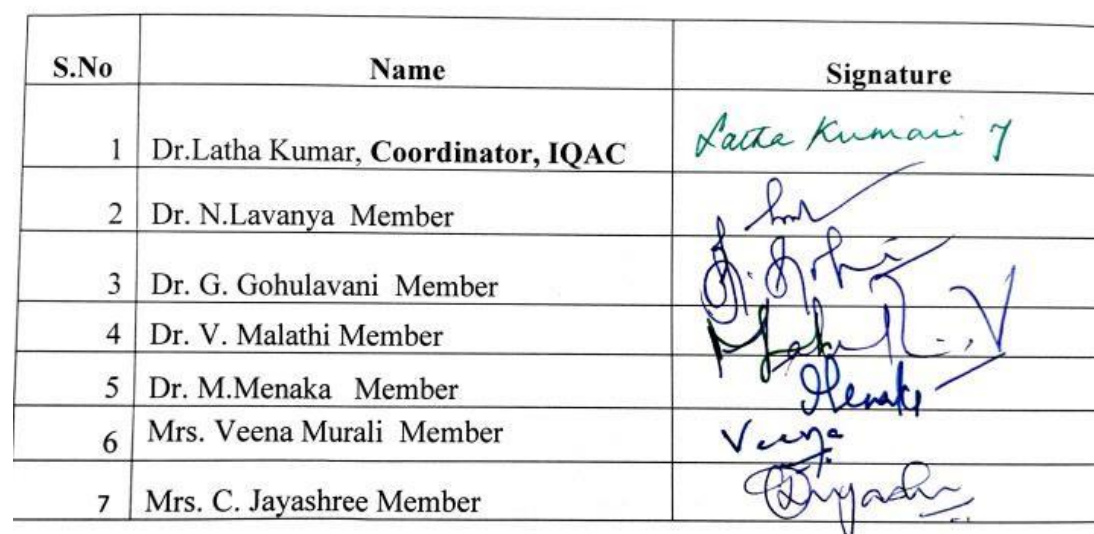 S.No Name Signature
1 Dr.Latha Kumar, Coordinator, IQAC Latha Kumari
2 Dr. N.Lavanya Member
3 Dr. G. Gohulavani Member
4 Dr. V. Malathi Member
5 Dr. M.Menaka Member
6 Mrs. Veena Murali Member Veena
7 Mrs. C. Jayashree Member